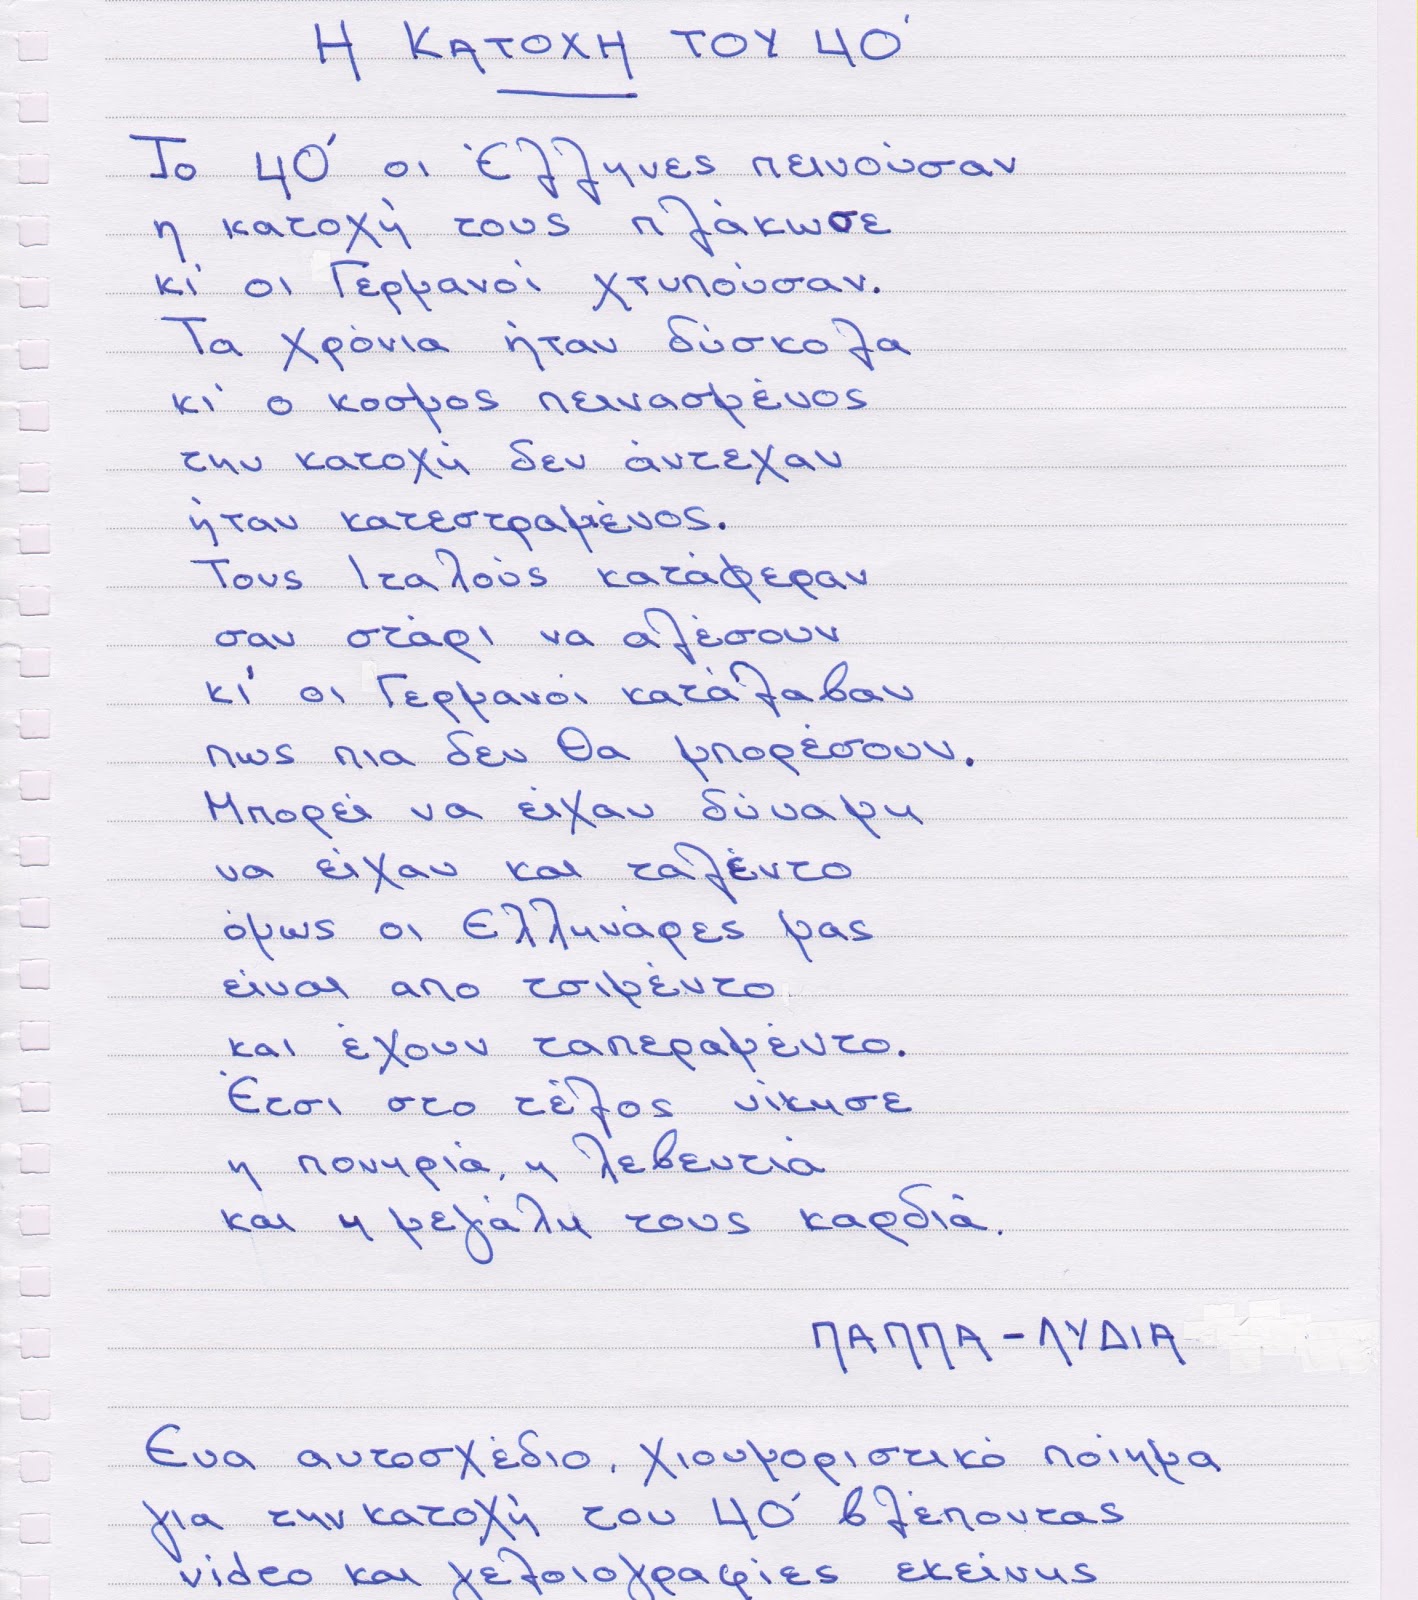 Η ΚΑΤΟΧΗ ΤΟΥ 40΄
Το 40΄ οι Έλληνες πεινούσαν
η κατοχή τους πλάκωσε
κι΄ οι Γερμανοί χτυπούσαν.
Τα χρόνια ήταν δύσκολα
κι΄ ο κοσμος πεινασμένος
την κατοχή δεν άντεχαν
ήταν κατεστραμένος.
Τους Ιταλούς κατάφεραν
σαν στάρι να αλέσουν
κι΄ οι Γερμανοί κατάλαβαν
πως πια δεν θα μπορέσουν.
Μπορεί να είχαν δύναμη
να είχαν και ταλέντο
όμως οι Ελληνάρες μας
είναι απο τσιμέντο
και έχουν ταπεραμέντο.
Έτσι στο τέλος νίκησε
η πονηριά, η λεβεντιά
και η μεγάλη τους καρδιά.
ΠΑΠΠΑ - ΛΥΔΙΑ
Ενα αυτοσχέδιο, χιουμοριστικό ποίημα
για την κατοχή του 40΄ βλέποντας
video και γελοιογραφίες εκείνης